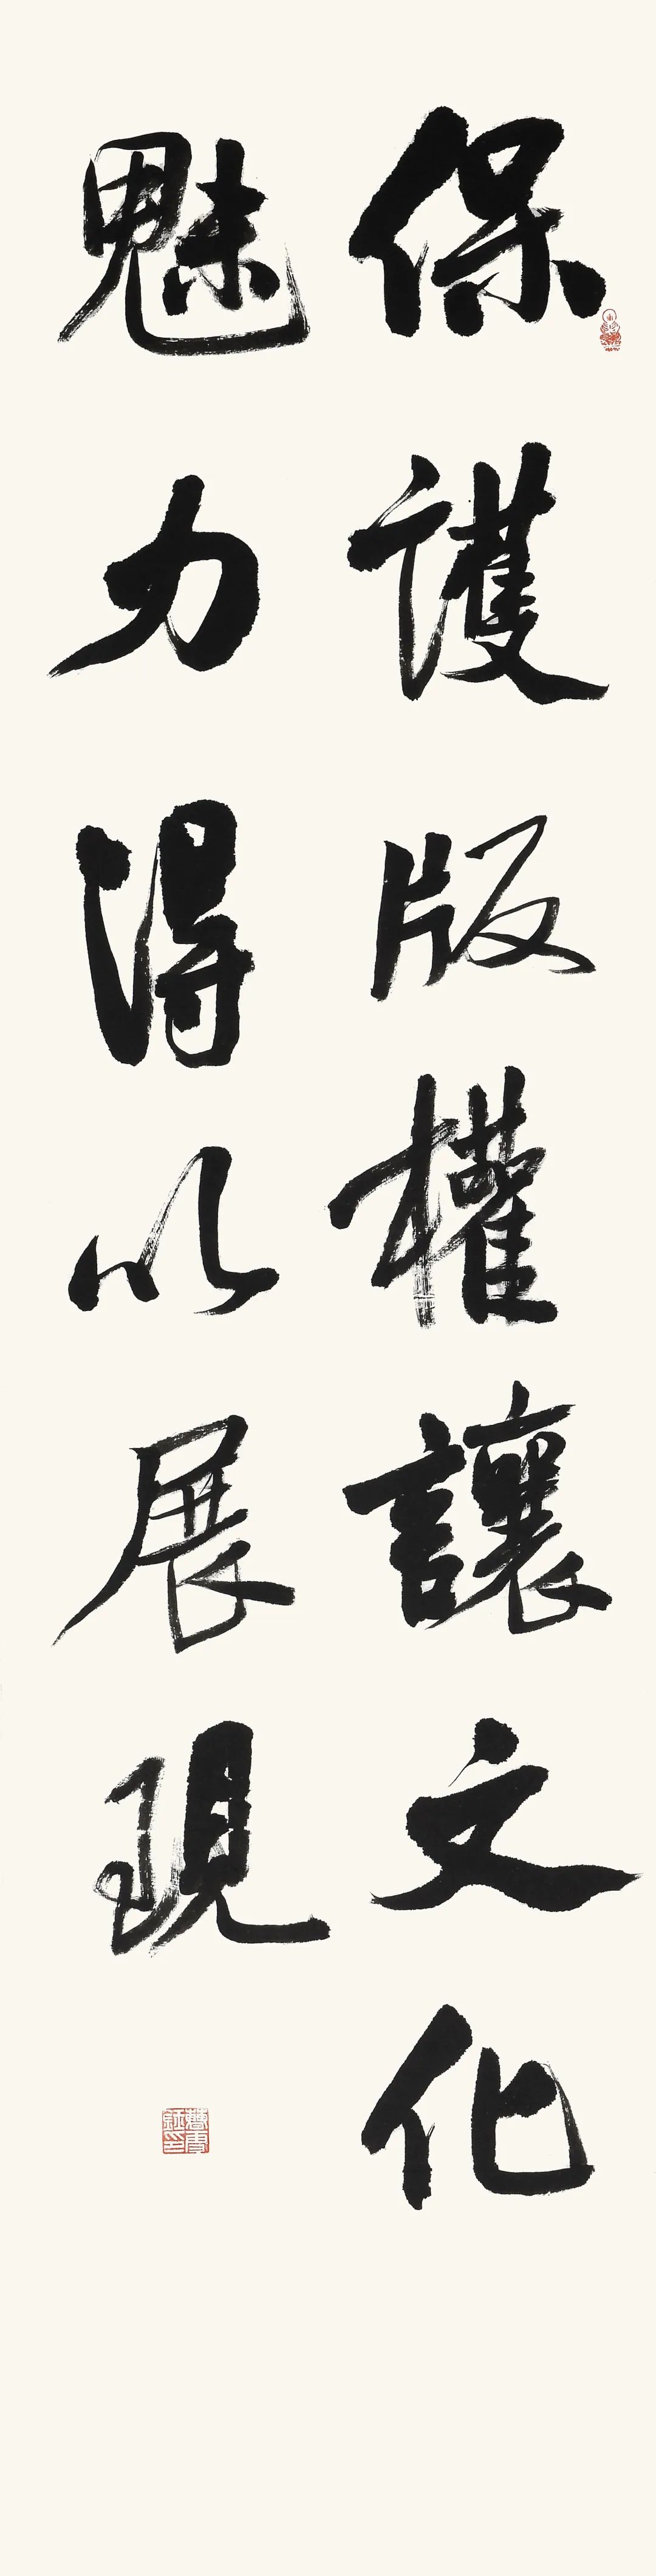 保護版權讓文化
魅力得以展現